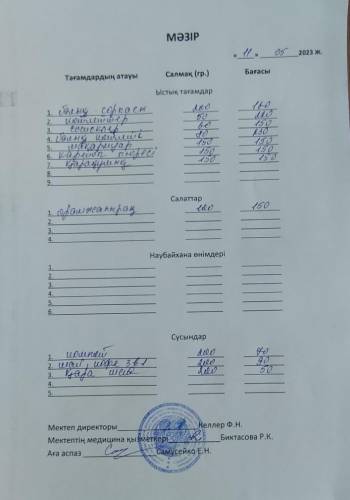 МӘЗІР
« 11 » 05 2023 ж.
Тағамдардың атауы Салмақ (гр.) Бағасы
Ыстық тағамдар
1. сорпасы 200
2. котлеттер 50
3. сосискалар 60 150
4. котлеті 90
5. макарондар 150 150
6. картоп пюресі 150 150
7. қарақұмық 150 150
8.
9.
Салаттар
1. 100 150
2.
3.
4.
Наубайхана өнімдері
1.
2.
3.
4.
5.
6.
Сусындар
1. компот 200 70
2. шай, кофе 3в1 200 90
3. қара шай 200 50
4.
5.
Мектеп директоры Келлер Ф.Н.
Мектептің медицина қызметкері Биктасова Р.К.
Аға аспаз Самусейко Е.Н.